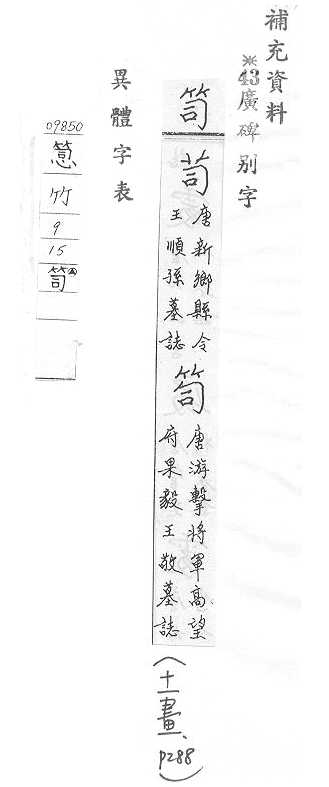 補充資料
※43廣碑别字
笥
苘 唐新鄉縣令
王順孫墓誌
笥 唐游擊將軍高望
府果毅王敬墓誌
(十一畫、P288)
異體字表
09850
竹
9
15
笥